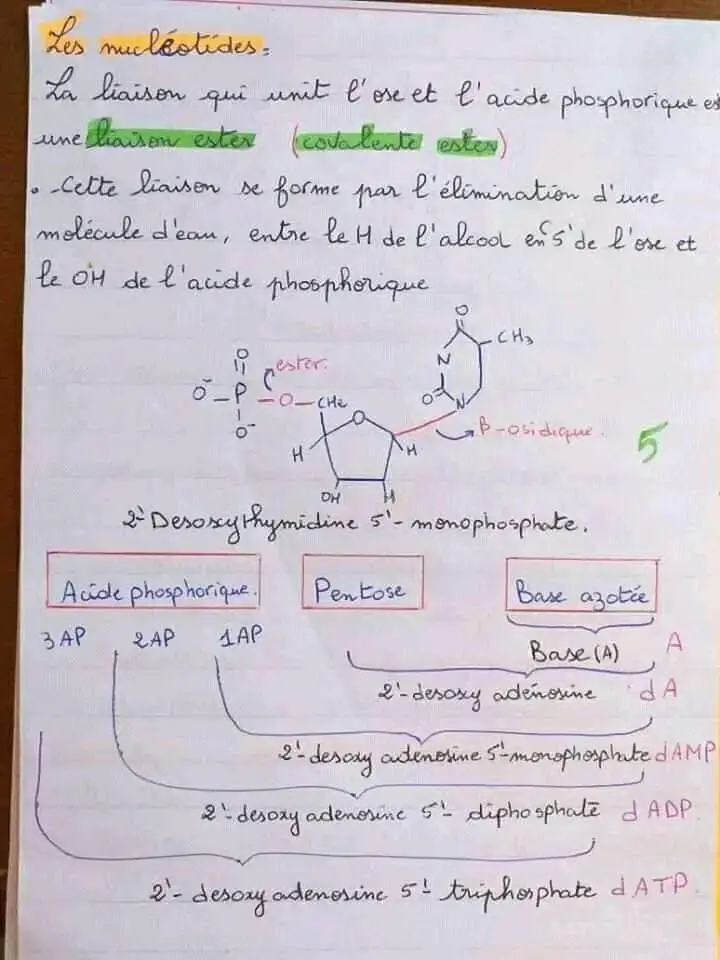 Les nucléotides:
La liaison qui unit l'ose et l'acide phosphorique es
une liaison ester (covalente ester)
. -Cette liaison se forme par l'élimination d'une
molécule d'eau, entre le H de l'alcool en C5' de l'ose et
le OH de l'acide phosphorique
O
ester.
O⁻-P-O-CH₂
O⁻
O
N
CH₃
O
N
O
β-osidique.
H
H
OH
H
5
2'-Desoxythymidine 5'-monophosphate.
Acide phosphorique. Pentose Base azotée
3AP 2AP 1AP
Base (A) A
2'-desoxy adénosine dA
2'-desoxy adenosine 5'-monophosphate dAMP
2'-desoxy adenosine 5'- diphosphate dADP.
2'- desoxy adenosine 5'- triphosphate dATP.